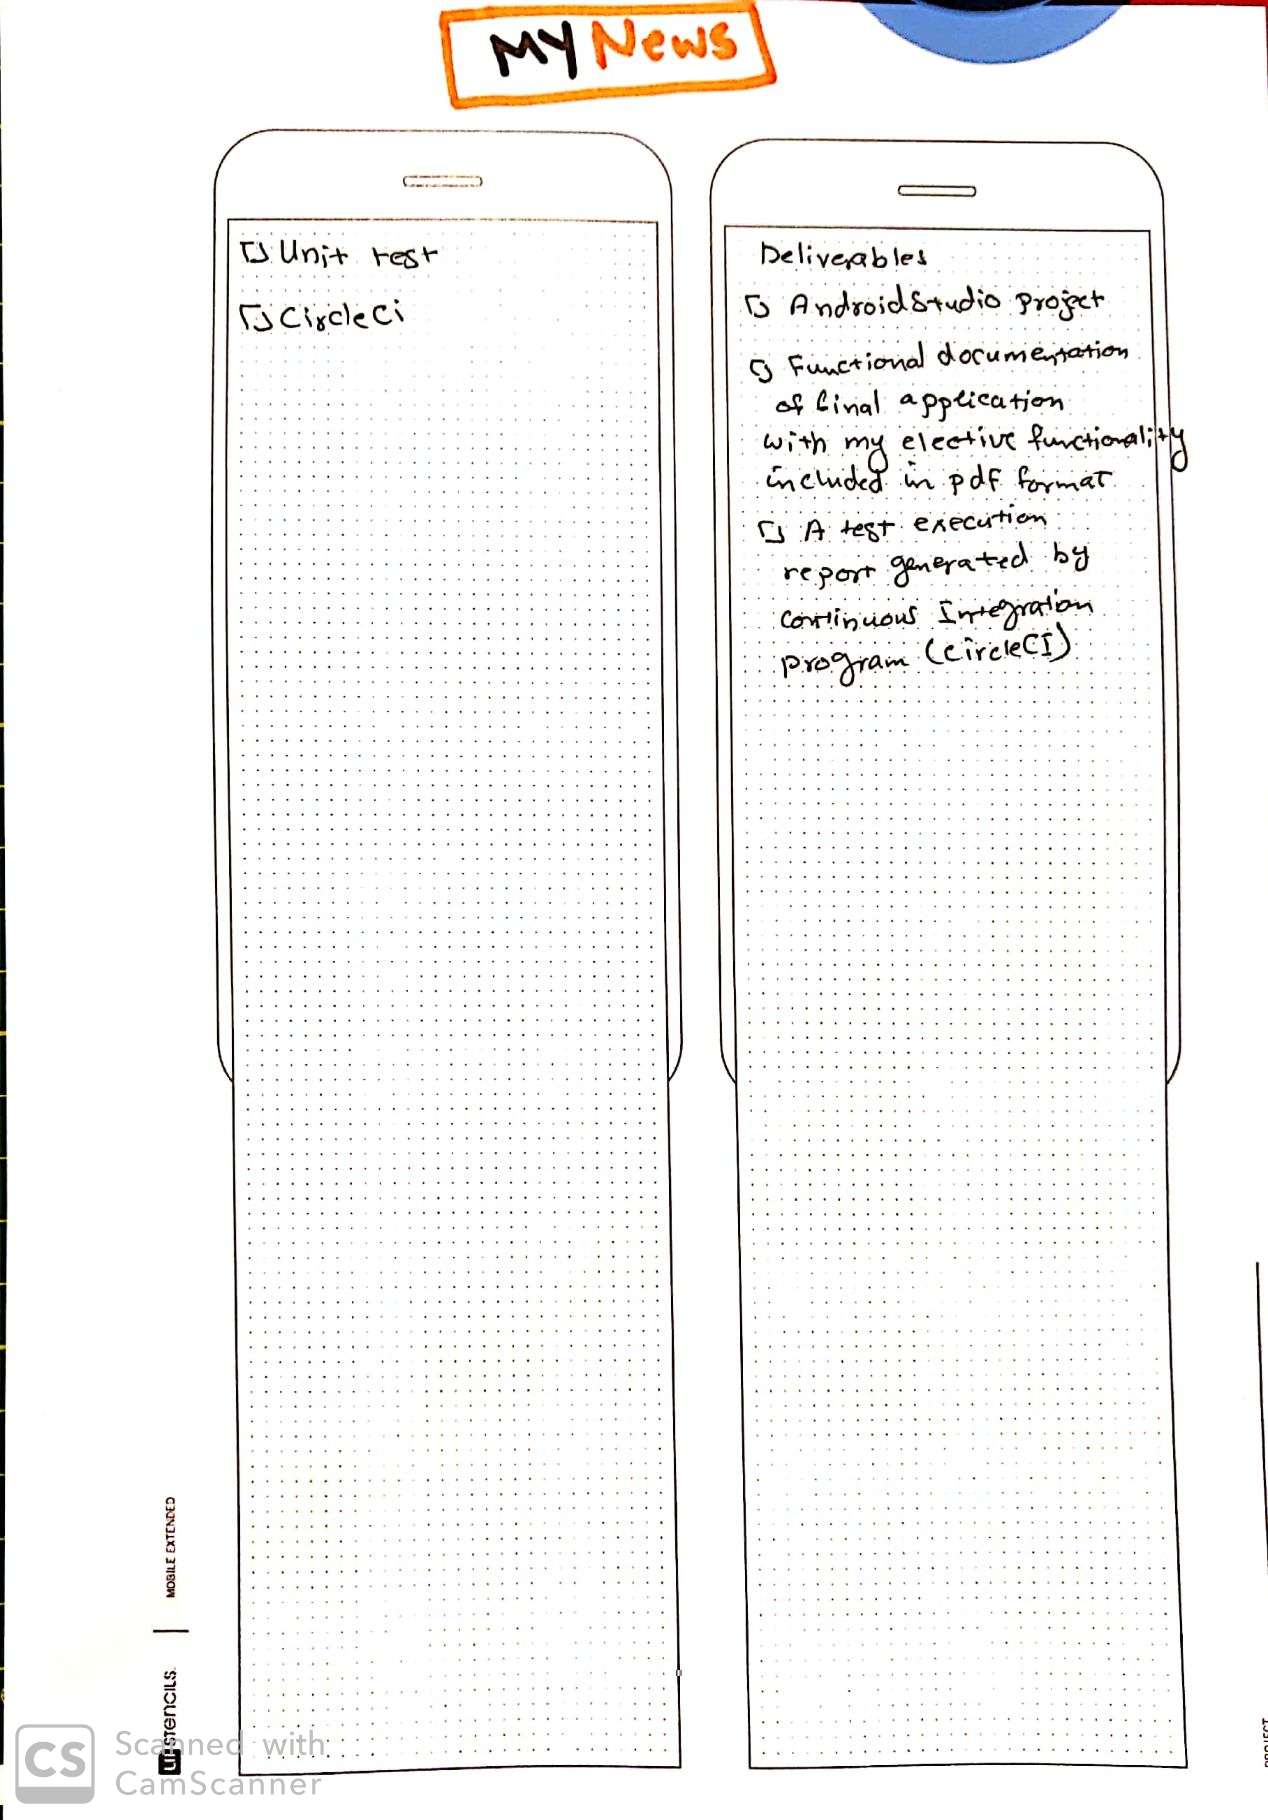 MY News
Unit test
CircleCi
Deliverables
AndroidStudio project
Functional documentation
of final application
with my elective functionality
included in pdf format
A test execution
report generated by
continuous Integration
program (circleCI)
MOBILE EXTENDED
UI STENCILS.
PROJECT
CS
Scanned with
CamScanner